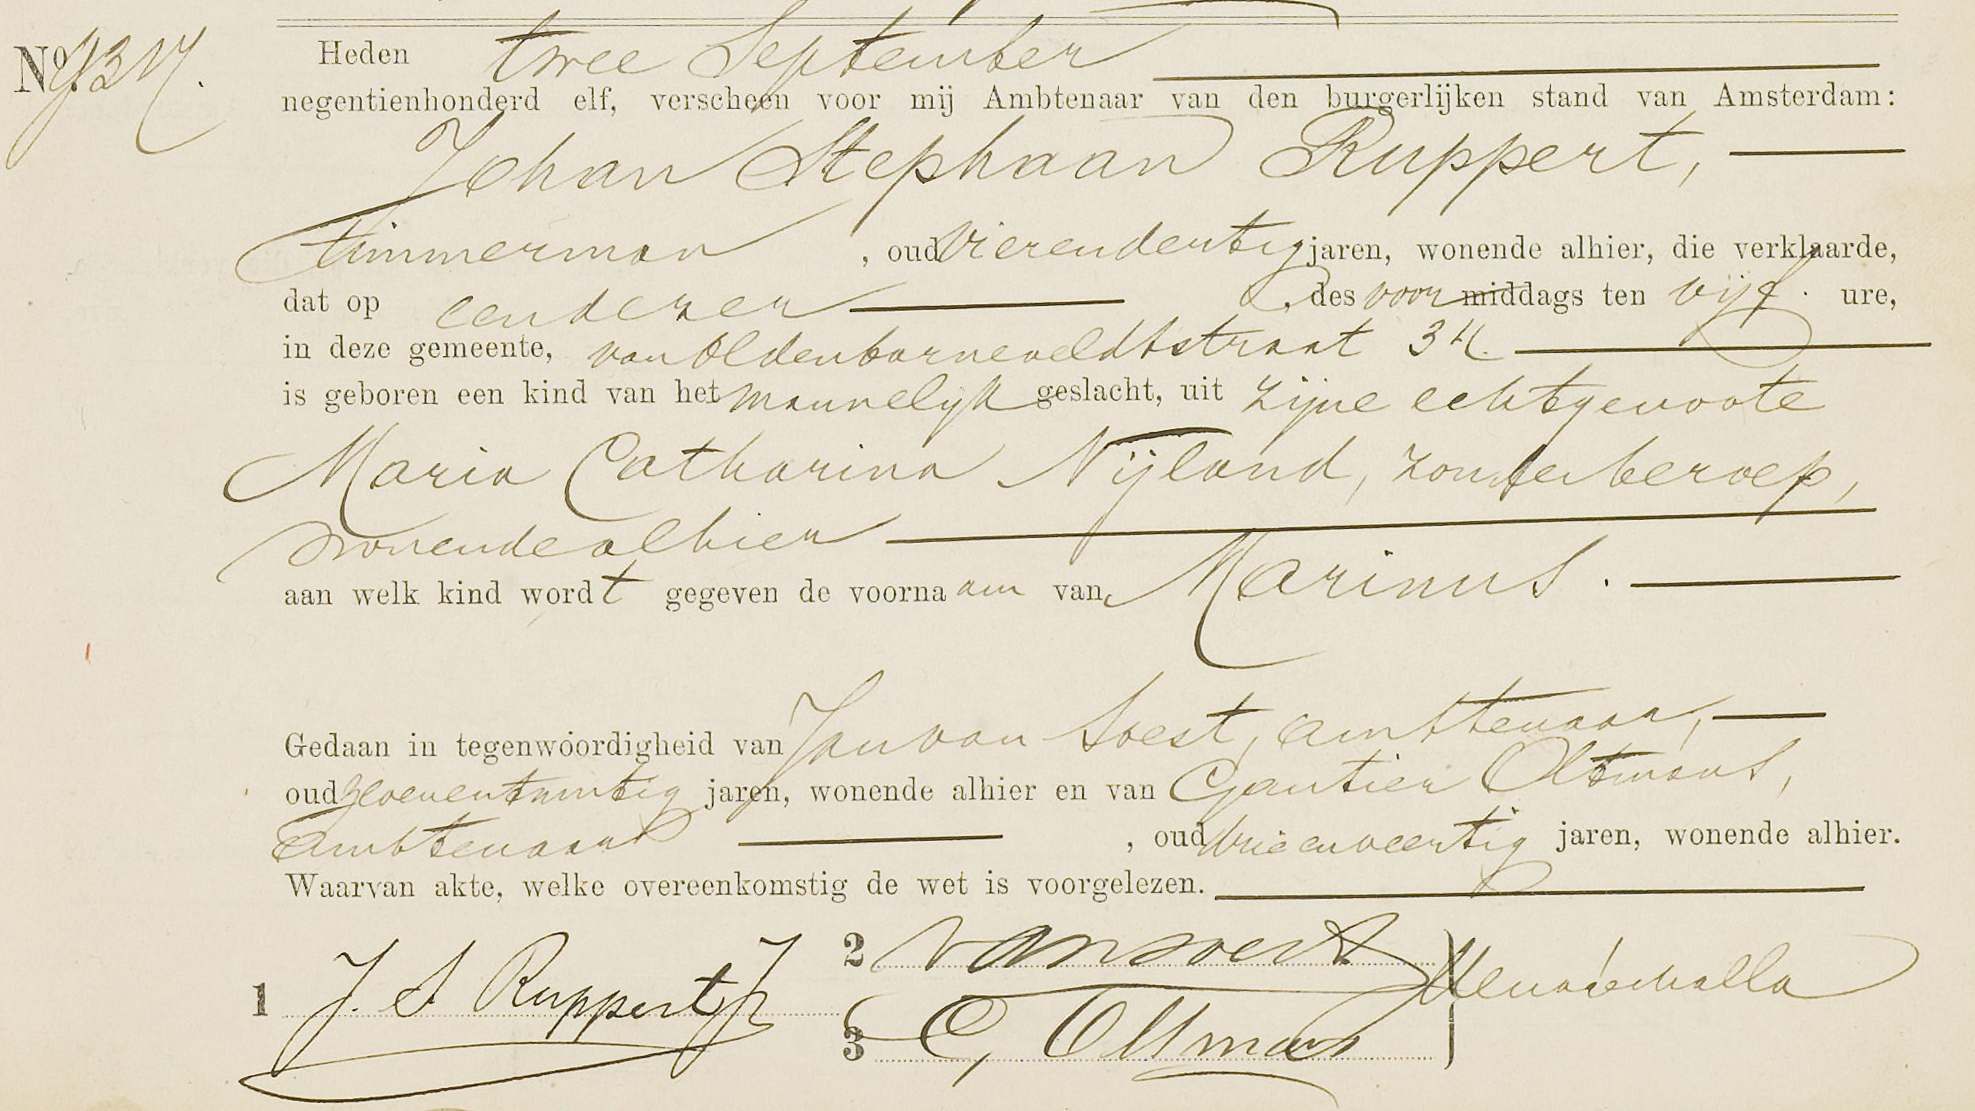 Heden twee September
negentienhonderd elf, verscheen voor mij Ambtenaar van den burgerlijken stand van Amsterdam:
Johan Stephaan Ruppert,
timmerman, oud vierendertig jaren, wonende alhier, die verklaarde,
dat op eendezer, des voormiddags ten vijf ure,
in deze gemeente, van Oldenbarneveldtstraat 34
is geboren een kind van het mannelijk geslacht, uit zijne echtgenoote
Maria Catharina Nijland, zonder beroep,
wonende alhier
aan welk kind wordt gegeven de voornaam van Marinus.
Gedaan in tegenwoordigheid van Jan van Soest, ambtenaar,
oud zevenentwintig jaren, wonende alhier en van Gautier Oltmans,
ambtenaar, oud drieenveertig jaren, wonende alhier.
Waarvan akte, welke overeenkomstig de wet is voorgelezen.
1 J. S Ruppert Jr
2 van Soest
3 G, Oltmans